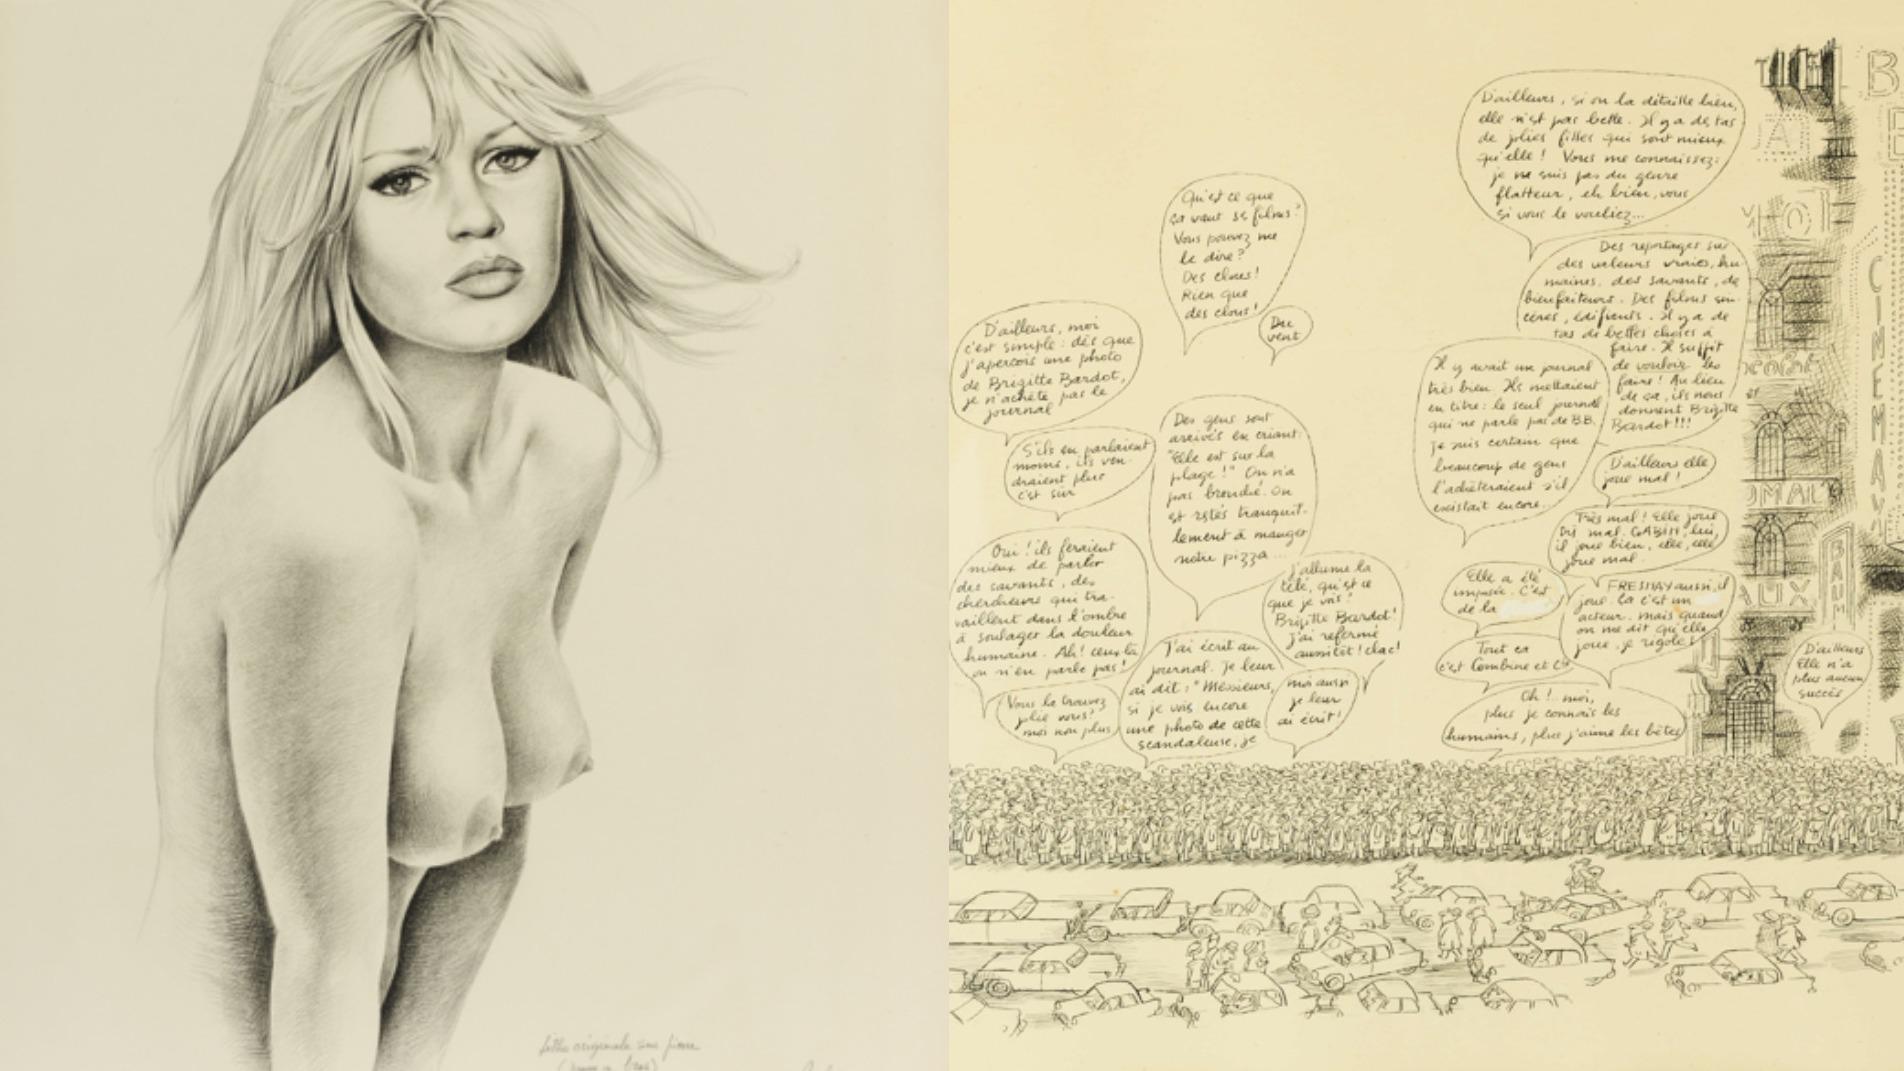 litho originale sur pierre
D'ailleurs, moi
c'est simple : dès que
j'aperçois une photo
de Brigitte Bardot,
je n'achète pas le
journal
S'ils en parlaient
moins, ils ven-
draient plus
c'est sur
Oui ! ils feraient
mieux de parler
des savants, des
chercheurs qui tra-
vaillent dans l'ombre
à soulager la douleur
humaine. Ah! ceux là
on n'en parle pas !
Vous la trouvez
jolie vous?
moi non plus
Qu'est ce que
ça vaut ses films?
Vous pouvez me
le dire?
Des clous!
Rien que
des clous!
Du
vent
Des gens sont
arrivés en criant:
"Elle est sur la
plage!" On n'a
pas bronché. On
est restés tranquil-
lement à manger
notre pizza...
J'allume la
télé, qu'est ce
que je vois?
Brigitte Bardot!
j'ai refermé
aussitôt! clac!
J'ai écrit au
journal. Je leur
ai dit : "Messieurs,
si je vois encore
une photo de cette
scandaleuse, je
moi aussi
je leur
ai écrit!
D'ailleurs, si on la détaille bien,
elle n'est pas belle. Il y a des tas
de jolies filles qui sont mieux
qu'elle! Vous me connaissez:
je ne suis pas du genre
flatteur, eh bien, vous
si vous le vouliez...
Des reportages sur
des valeurs vraies, hu-
maines. des savants, de
bienfaiteurs. Des films sin-
cères, édifiants. Il y a de
tas de belles choses à
faire. Il suffit
de vouloir les
faire! Au lieu
de ça, ils nous
donnent Brigitte
Bardot!!!
Il y avait un journal
très bien. Ils mettaient
en titre: le seul journal
qui ne parle pas de B.B.
Je suis certain que
beaucoup de gens
l'achèteraient s'il
existait encore...
D'ailleurs elle
joue mal!
Très mal! Elle joue
très mal. GABIN, lui,
il joue bien, elle, elle
joue mal.
Elle a été
imposée. C'est
de la
FRESNAY aussi, il
joue. Ça c'est un
acteur. mais quand
on me dit qu'elle
joue, je rigole!
Tout ça
c'est Combine et Cie
Oh! moi,
plus je connais les
humains, plus j'aime les bêtes
D'ailleurs
Elle n'a
plus aucun
succès
B
CINEMA
OMAL
AUX
BAUM